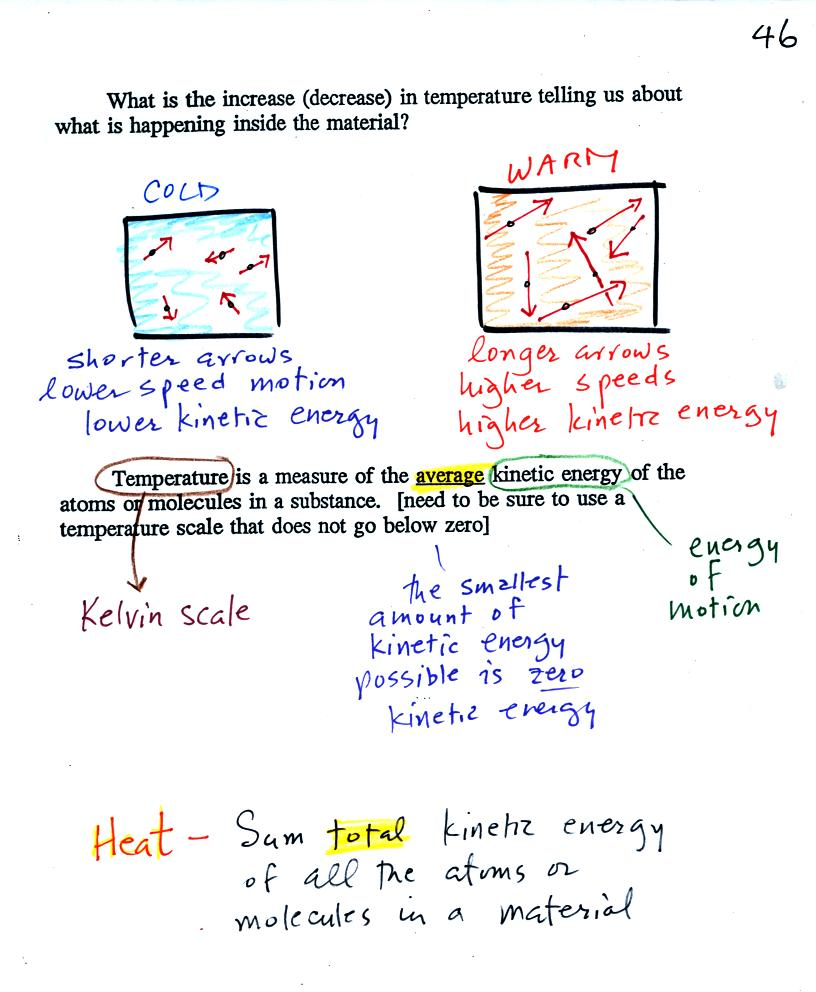 46
What is the increase (decrease) in temperature telling us about
what is happening inside the material?
COLD
WARM
shorter arrows
lower speed motion
lower kinetic energy
longer arrows
higher speeds
higher kinetic energy
Temperature is a measure of the average kinetic energy of the
atoms or molecules in a substance. [need to be sure to use a
temperature scale that does not go below zero]
Kelvin scale
the smallest
amount of
kinetic energy
possible is zero
kinetic energy
energy
of
motion
Heat – Sum total kinetic energy
of all the atoms or
molecules in a material